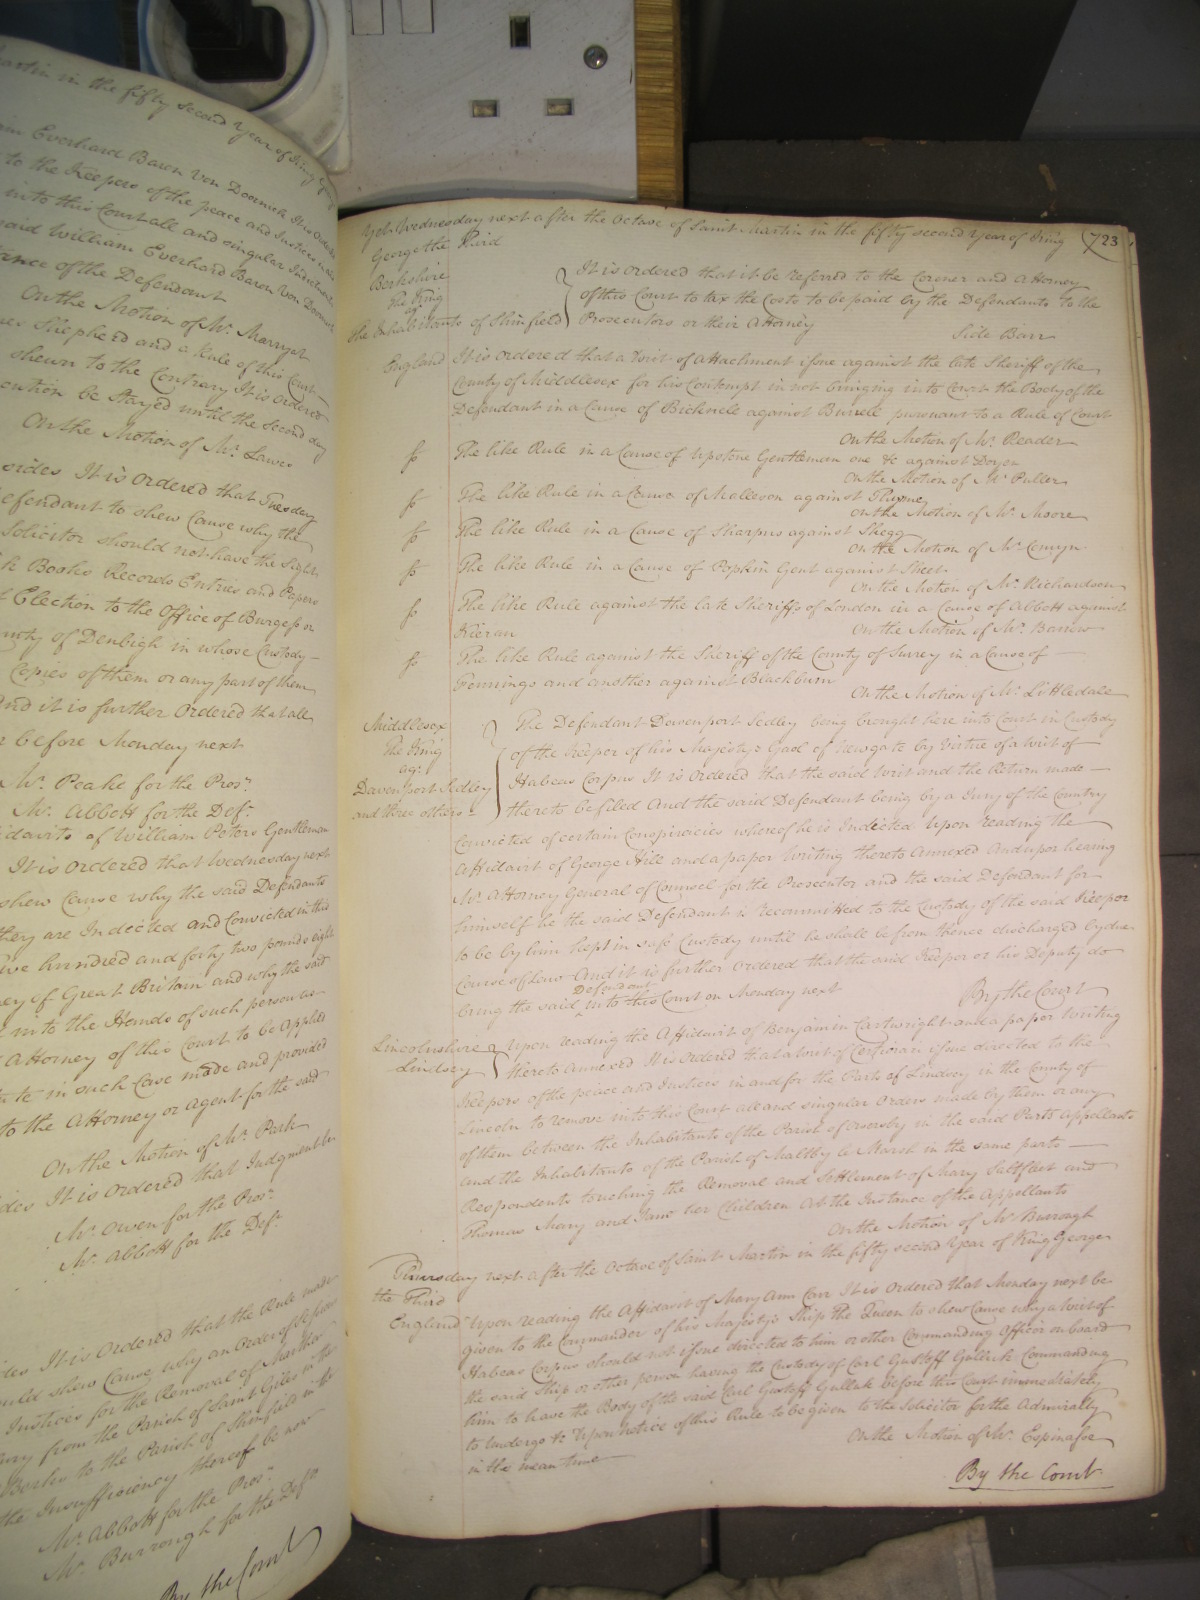 Martin in the fifty second Year of King
Everhard Baron Von Doornick It is Ordered
to the Keepers of the peace and Justices
into this Court all and singular Indictments
said William Everhard Baron Von Doornick
of the Defendant
On the Motion of Mr. Marryat
Shepherd and a Rule of this Court
shewn to the Contrary It is ordered
be Stayed until the second day
On the Motion of Mr. Lawes
sides It is Ordered that Tuesday
Defendant to shew Cause why the
Solicitor should not have the Sight
Books Records Entries and Papers
Election to the Office of Burgess or
of Denbigh in whose Custody
Copies of them or any part of them
And it is further Ordered that all
before Monday next
Mr. Peake for the Prosr.
Mr. Abbott for the Deft.
of William Peters Gentleman
It is Ordered that Wednesday next
shew Cause why the said Defendants
they are Indicted and Convicted in this
five hundred and forty two pounds eight
of Great Britain and why the said
into the Hands of such person as
Attorney of this Court to be applied
in such Case made and provided
to the Attorney or Agent for the said
On the Motion of Mr. Park
sides It is Ordered that Judgment be
Mr. Owen for the Prosr.
Mr. Abbott for the Deft.
sides It is Ordered that the Rule made
should shew Cause why an Order of Session
Justices for the Removal of Martha
from the Parish of Saint Giles in the
Berks to the Parish of Shinfield in the
the Insufficiency thereof be now
Mr. Abbott for the Prosr.
Mr. Burrough for the Deft.
By the Court
Yet Wednesday next after the Octave of Saint Martin in the fifty second Year of King
George the Third
723
Berkshire
The King
agt.
the Inhabitants of Shinfield
It is ordered that it be referred to the Coroner and Attorney
of this Court to tax the Costs to be paid by the Defendants to the
Prosecutors or their Attorney
Side Barr
England It is ordered that a Writ of Attachment issue against the late Sheriff of the
County of Middlesex for his Contempt in not bringing into Court the Body of the
Defendant in a Cause of Bicknell against Burrell pursuant to a Rule of Court
On the Motion of Mr. Reader
The like Rule in a Cause of Upstone Gentleman one &c against Doyen
On the Motion of Mr. Puller
The like Rule in a Cause of Malleson against Thynne
On the Motion of Mr. Moore
The like Rule in a Cause of Sharpus against Shegg
On the Motion of Mr. Comyn
The like Rule in a Cause of Popkin Gent against Skeet
On the Motion of Mr. Richardson
The like Rule against the late Sheriffs of London in a Cause of Abbott against
Kieran
On the Motion of Mr. Barrow
The like Rule against the Sheriff of the County of Surrey in a Cause of
Fennings and another against Blackburn
On the Motion of Mr. Littledale
Middlesex
The King
agt.
Davenport Sedley
and three others
The Defendant Davenport Sedley being brought here into Court in Custody
of the Keeper of his Majesty's Gaol of Newgate by Virtue of a writ of
Habeas Corpus It is Ordered that the said Writ and the Return made
thereto be filed And the said Defendant being by a Jury of the Country
Convicted of certain Conspiracies whereof he is Indicted Upon reading the
Affidavit of George Hill and a paper Writing thereto Annexed And upon hearing
Mr. Attorney General of Counsel for the Prosecutor and the said Defendant for
himself he the said Defendant is recommitted to the Custody of the said Keeper
to be by him kept in safe Custody until he shall be from thence discharged by due
Course of Law And it is further Ordered that the said Keeper or his Deputy do
bring the said Defendant into this Court on Monday next
By the Court
Lincolnshire
Lindsey
Upon reading the Affidavit of Benjamin Cartwright and a paper Writing
thereto Annexed It is Ordered that a writ of Certiorari issue directed to the
Keepers of the peace and Justices in and for the Parts of Lindsey in the County of
Lincoln to remove into this Court all and singular Orders made by them or any
of them between the Inhabitants of the Parish of Orersby in the said Parts Appellants
and the Inhabitants of the Parish of Maltby le Marsh in the same parts
Respondents touching the Removal and Settlement of Mary Saltfleet and
Thomas Mary and Jane her Children At the Instance of the Appellants
On the Motion of Mr. Burrough
Thursday next after the Octave of Saint Martin in the fifty second Year of King George
the Third
England Upon reading the Affidavit of Mary Ann Carr It is Ordered that Monday next be
given to the Commander of his Majesty's Ship the Queen to shew Cause why a Writ of
Habeas Corpus should not issue directed to him or other Commanding Officer on board
the said Ship or other person having the Custody of Carl Gustoff Gulluk Commanding
him to have the Body of the said Carl Gustoff Gulluk before this Court immediately
to undergo &c Upon Notice of this Rule to be given to the Solicitor for the Admiralty
in the mean time
On the Motion of Mr. Espinasse
By the Court